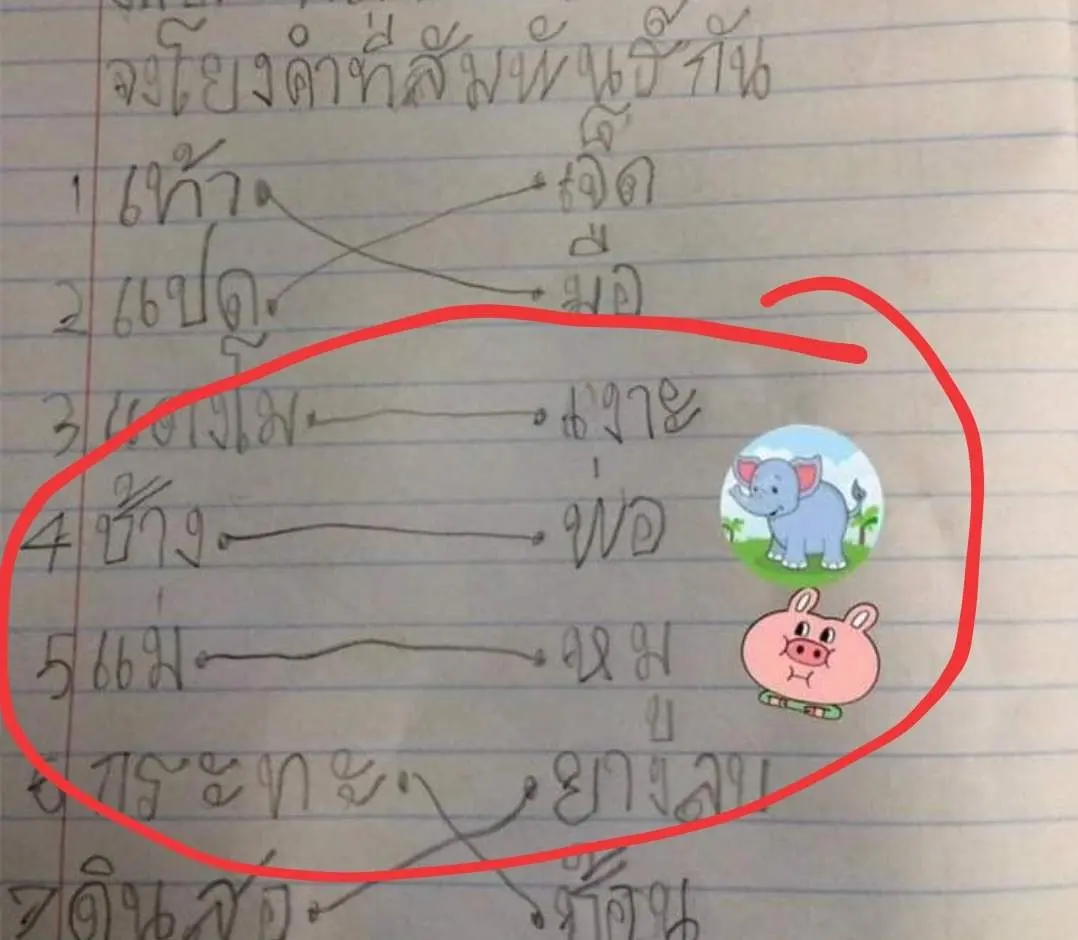 จงโยงคำที่สัมพันธ์กัน
1 เท้า เจ็ด
2 แปด มือ
3 แตงโม เงาะ
4 ช้าง พ่อ
5 แม่ หมู
6 กระทะ ยางลบ
7 ดินสอ